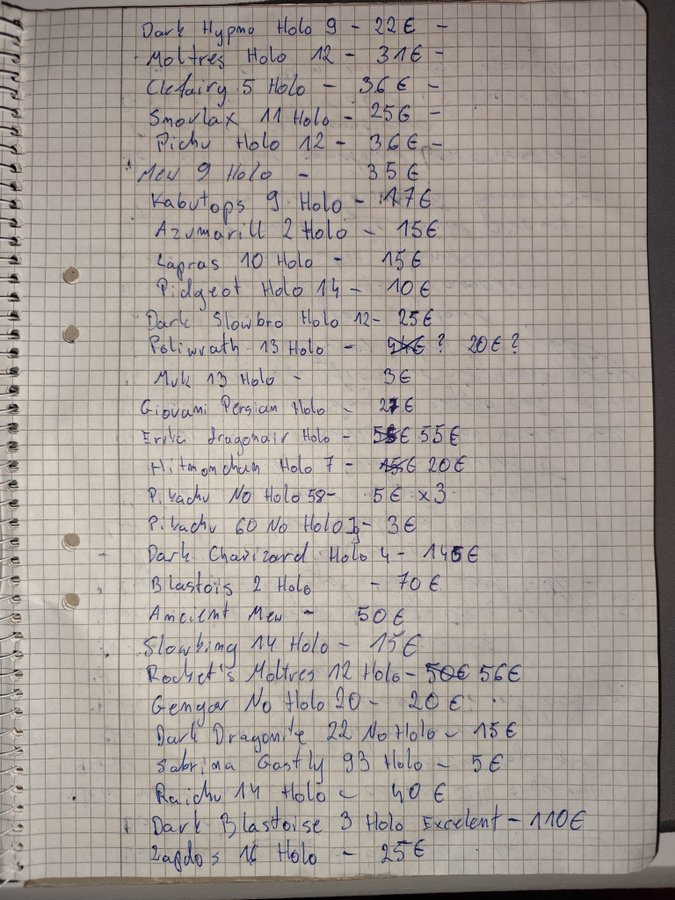 Dark Hypno Holo 9 - 22€ -
Moltres Holo 12 - 31€ -
Clefairy 5 Holo - 36€ -
Snorlax 11 Holo - 25€ -
Pichu Holo 12 - 36€ -
Mew 9 Holo - 35€
Kabutops 9 Holo - 17€
Azumarill 2 Holo - 15€
Lapras 10 Holo - 15€
Pidgeot Holo 14 - 10€
Dark Slowbro Holo 12 - 25€
Poliwrath 13 Holo - ? 20€ ?
Muk 13 Holo - 3€
Giovami Persian Holo - 27€
Erika dragonair Holo - 55€
Hitmoncham Holo 7 - 15€ 20€
Pikachu No Holo 58 - 5€ x3
Pikachu 60 No Holo - 3€
Dark Charizard Holo 4 - 145€
Blastois 2 Holo - 70€
Ancient Mew - 50€
Slowking 14 Holo - 15€
Rocket's Moltres 12 Holo - 50€ 56€
Gengar No Holo 20 - 20€
Dark Dragonite 22 No Holo - 15€
Sabrina Gastly 93 Holo - 5€
Raichu 14 Holo - 40€
Dark Blastoise 3 Holo Excelent - 110€
Zapdos Holo - 25€